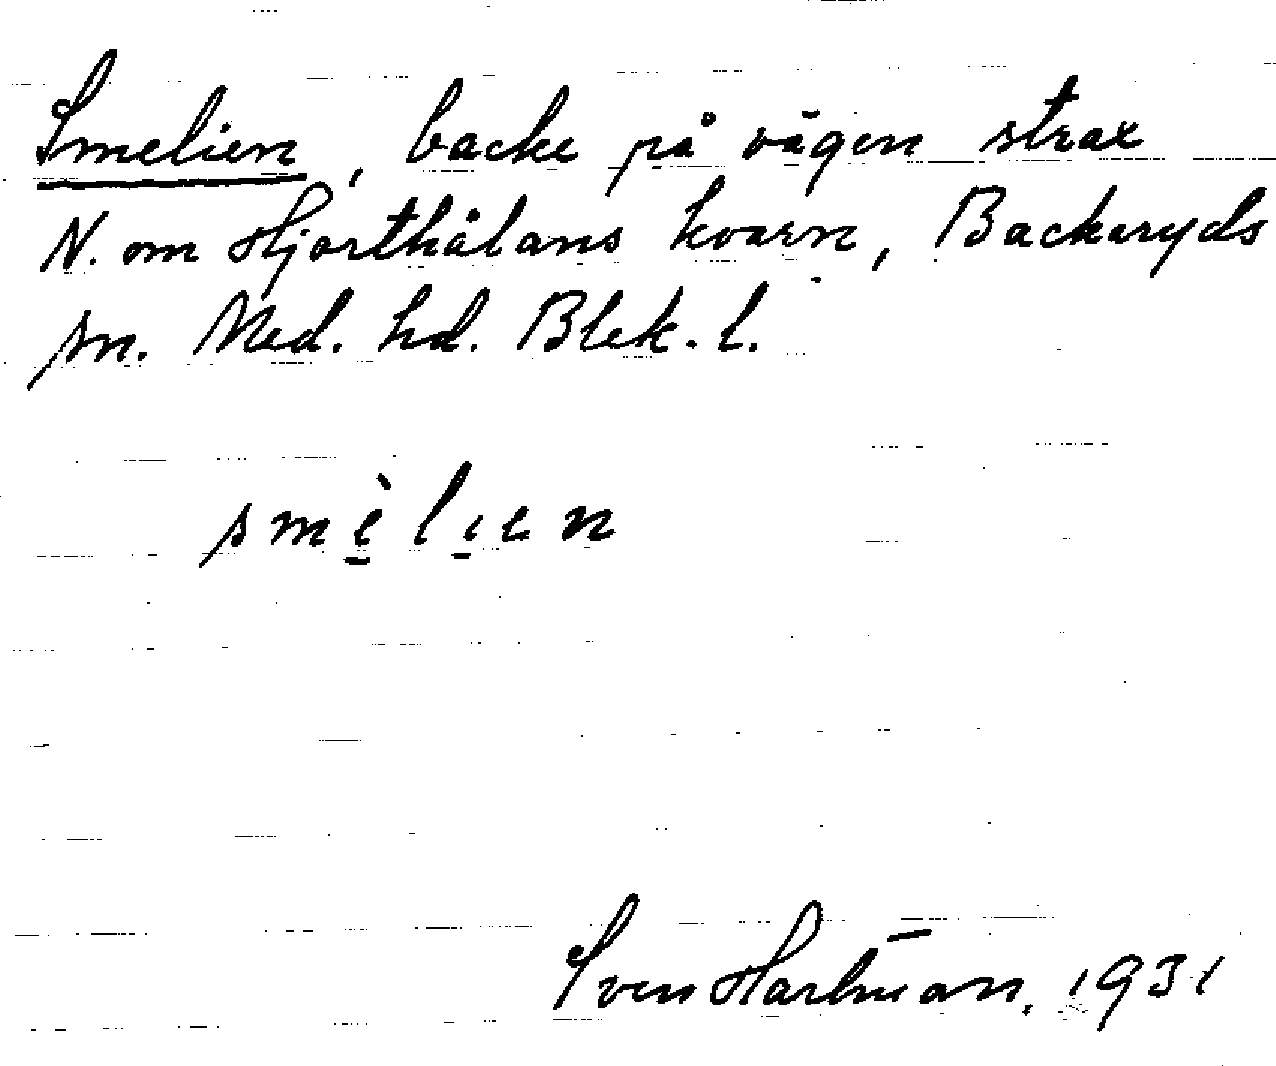 Smelien, backe på vägen strax
N. om Hjorthålans kvarn, Backaryds
sn. Med. hd. Blek. l.
smèlıen
Sven Hartman. 1931